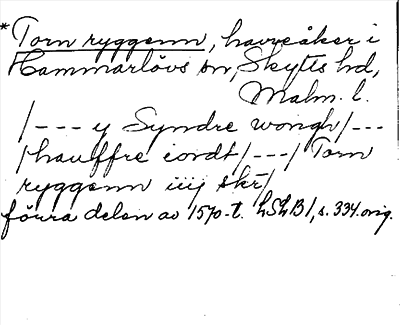 *Torn ryggenn, havreåker i
Hammarlövs sn, Skytts hd,
Malm. l.
/--- y Syndre wongh/---
/hauffre iordt/---/ Torn
ryggenn iiij skr/
förra delen av 1570-t. LSLB1, s. 334. orig.